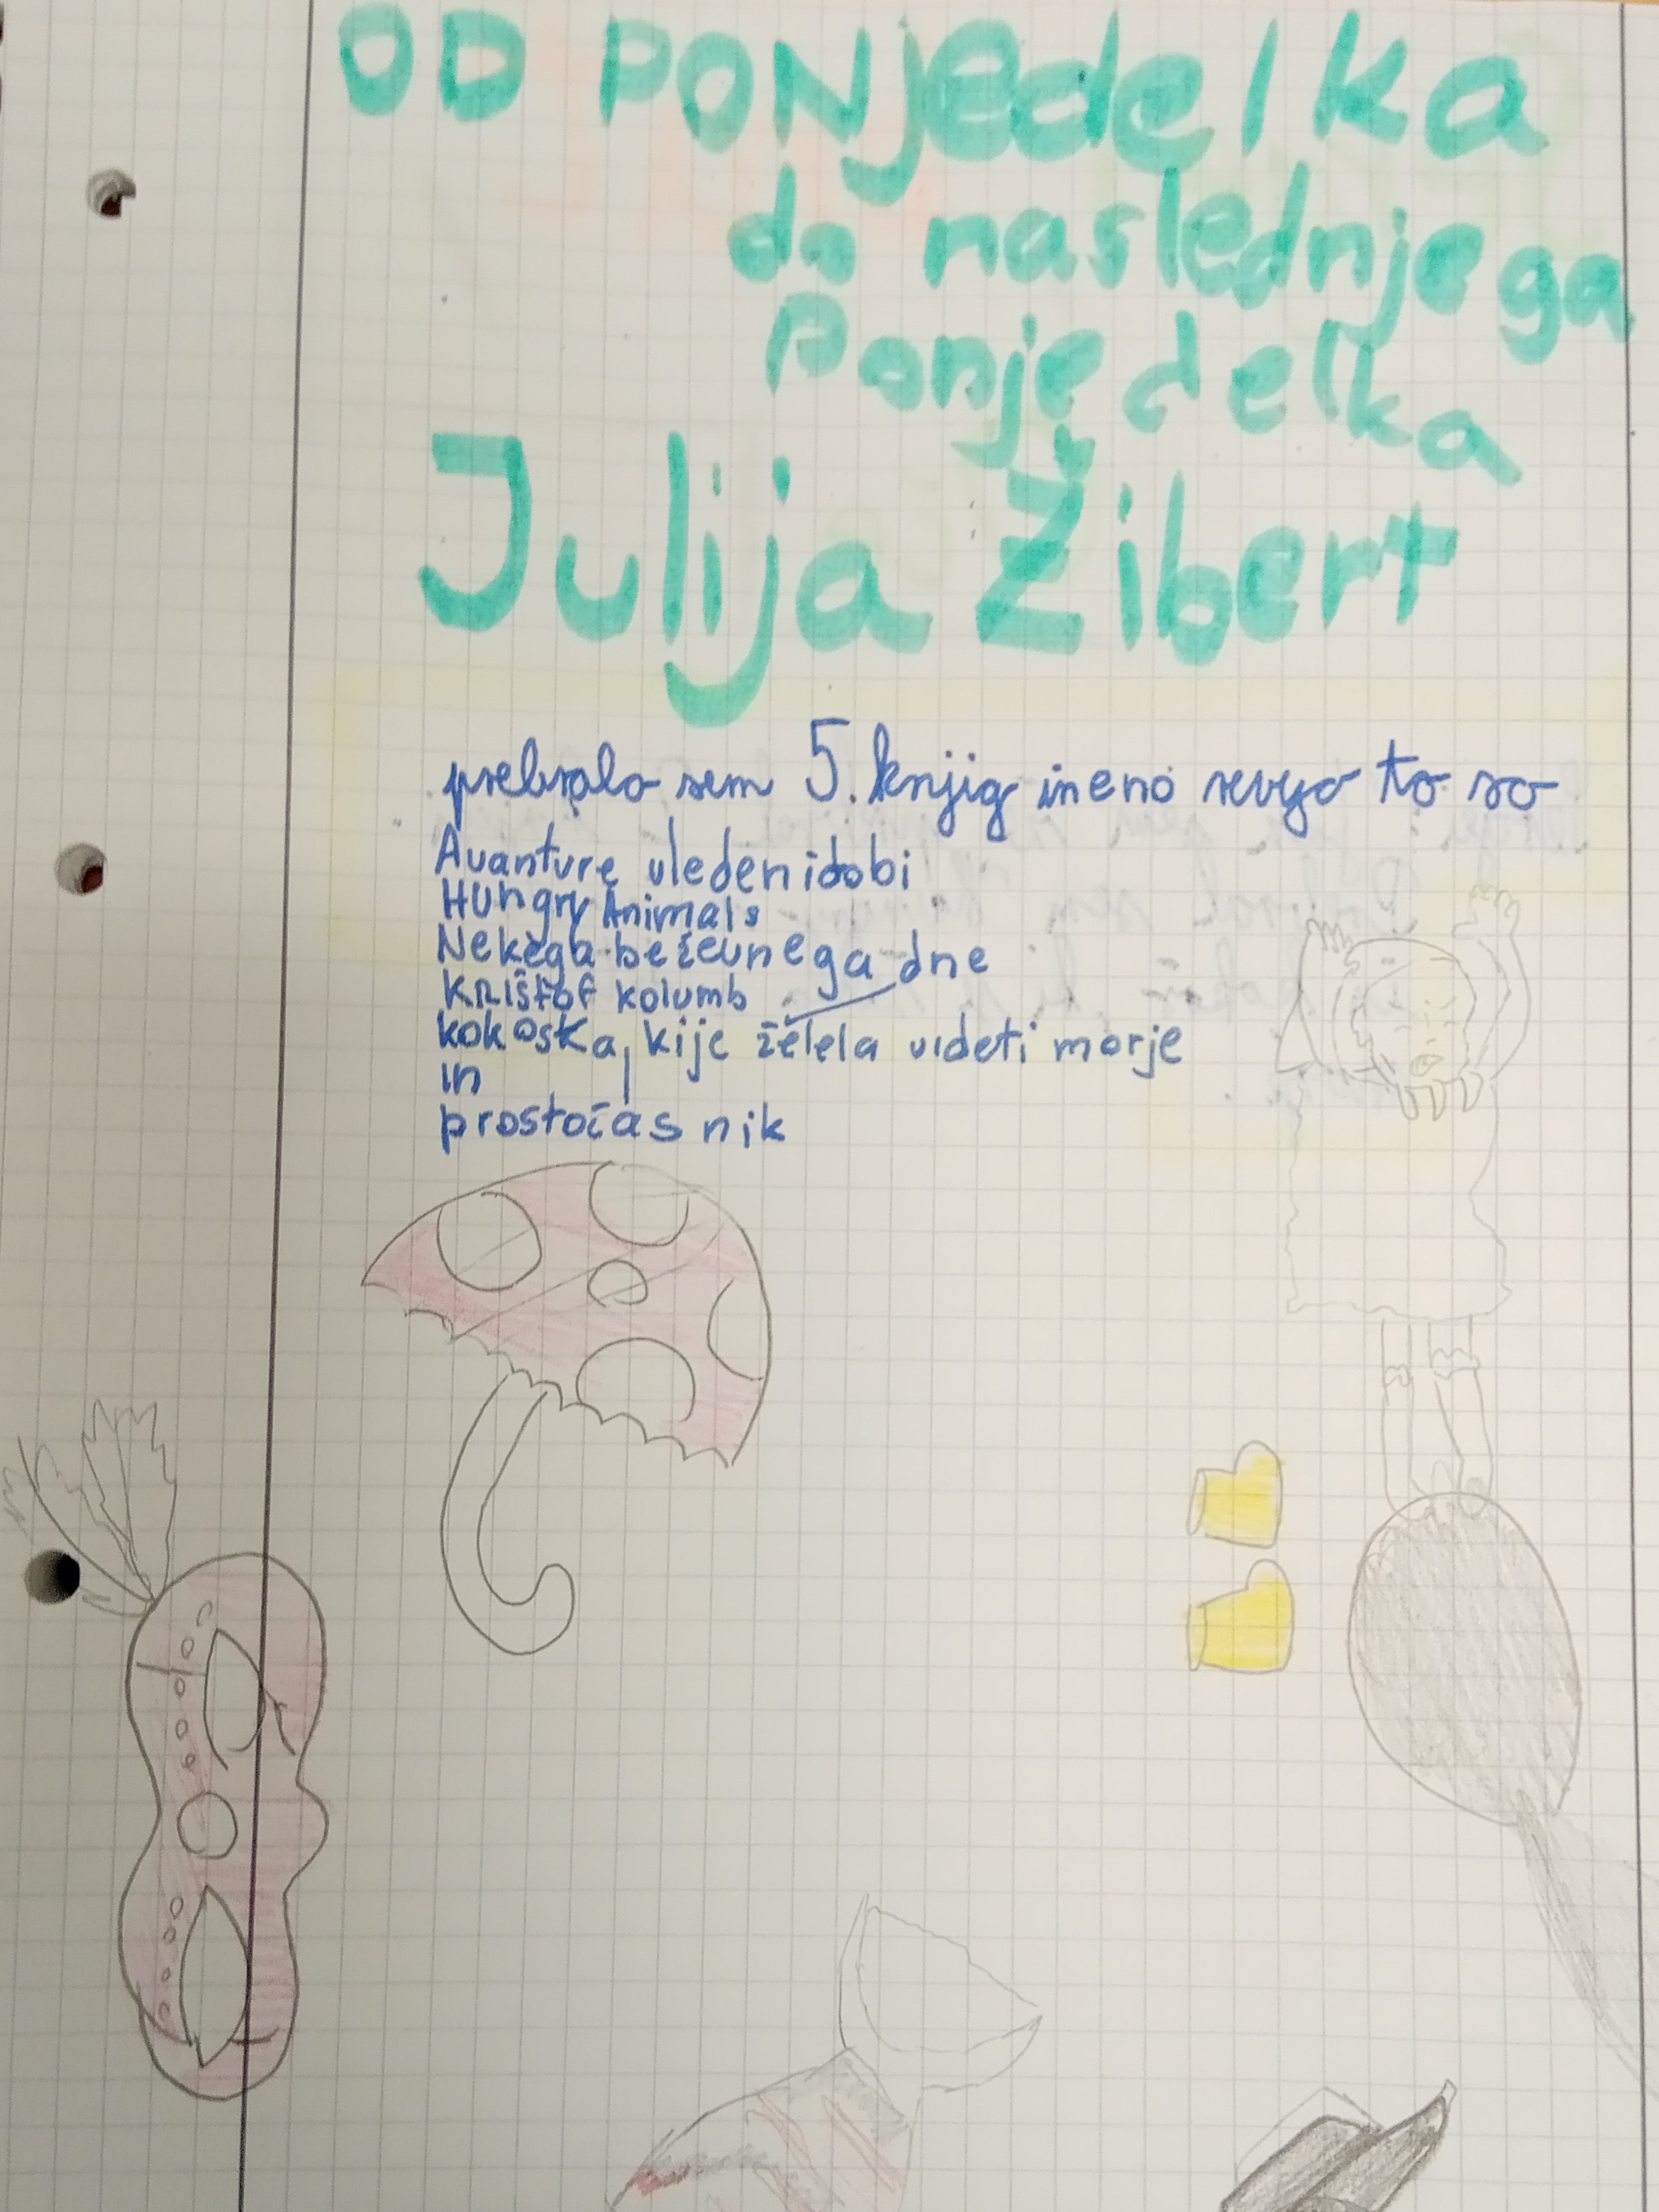 OD PONjedelka
do naslednjega
Ponjedelka
Julija Žibert
prebrala sem 5. knjig ineno revijo to so
Avanture vledenidobi
HUngry Animals
Nekega beževnega dne
KRištof kolumb
kokoška, kije želela videti morje
in
prostočasnik